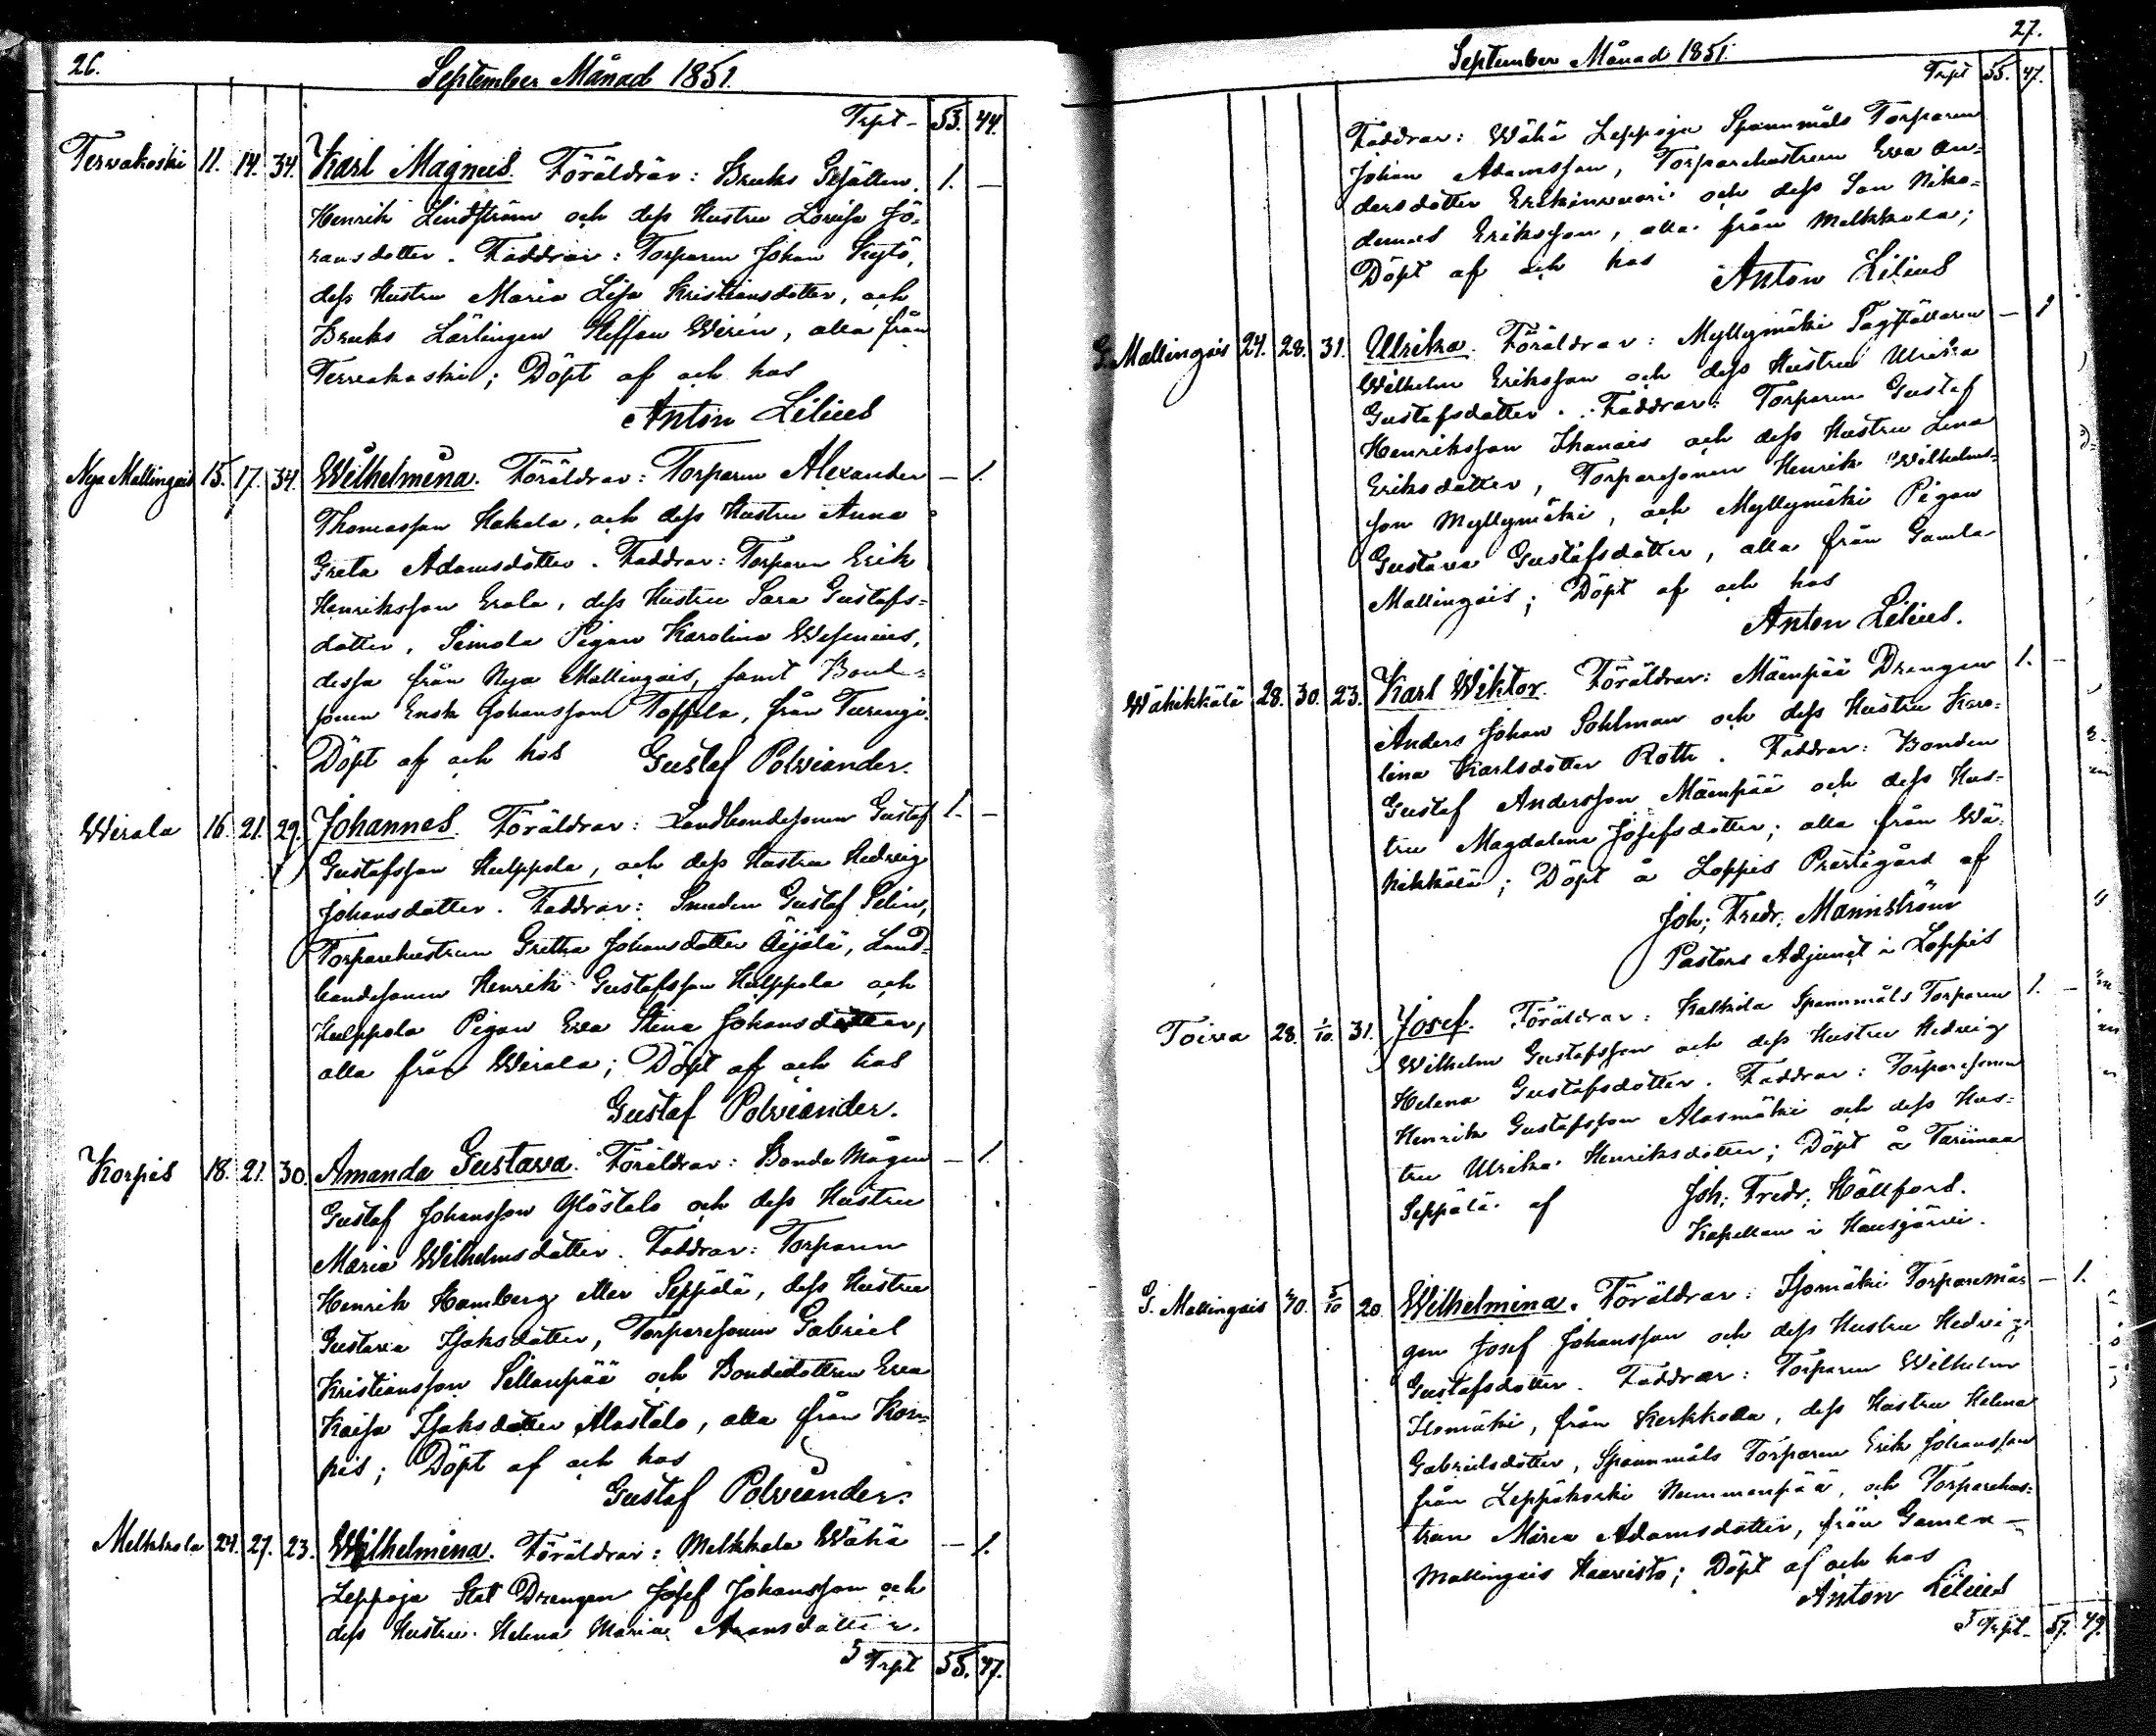 26.
September Månad 1851.
Trpt- 53. 44.
Tervakoski 11. 14. 34. Karl Magnus. Föräldrar: Bruks Gesällen 1. —
Henrik Lindström och dess Hustru Lovisa Jö-
ransdotter. Faddrar: Torparen Johan Kytö,
dess Hustru Maria Lisa Kristiansdotter, och
Bruks Lärlingen Steffan Wirén, alla från
Tervakoski; Döpt af och hos
Anton Lilius
Nya Mallingais 15. 17. 34. Wilhelmina. Föräldrar: Torparen Alexander — 1.
Thomasson Hakala, och dess Hustru Anna
Greta Adamsdotter. Faddrar: Torparen Erik
Henriksson Erola, dess Hustru Sara Gustafs=
dotter, Simola Pigan Karolina Wesenius,
dessa från Nya Mallingais, samt Bond=
sonen Enok Johansson Toffila, från Turengi.
Döpt af och hos Gustaf Polviander.
Wirala 16. 21. 29. Johannes. Föräldrar: Landbondesonen Gustaf 1. —
Gustafsson Hulppola, och dess Hustru Hedvig
Johansdotter. Faddrar: Smeden Gustaf Selin,
Torparehustrun Gretha Johansdotter Äijälä, Land=
bondesonen Henrik Gustafsson Hulppola och
Hulppola Pigan Eva Stina Johansdotter,
alla från Wirala; Döpt af och hos
Gustaf Polviander.
Korpis 18. 21. 30. Amanda Gustava. Föräldrar: Bonde Mågen — 1.
Gustaf Johansson Ylöstalo och dess Hustru
Maria Wilhelmsdotter. Faddrar: Torparen
Henrik Hamberg eller Seppälä, dess Hustru
Gustava Isaksdotter, Torparesonen Gabriel
Kristiansson Sillanpää och Bondedottren Eva
Kaisa Isaksdotter Alastalo, alla från Kor=
pis; Döpt af och hos
Gustaf Polviander.
Melkkola 24. 27. 23. Wilhelmina. Föräldrar: Melkkola Wähä — 1.
Leppoja Stat Drengen Josef Johansson och
dess Hustru Helena Maria Aronsdotter.
Trpt 55. 47.
27.
September Månad 1851.
Trpt 55. 47.
Faddrar: Wähä Leppoja Spannmåls Torparen
Johan Adamsson, Torparehustrun Eva An=
dersdotter Erkinvuori och dess Son Niko=
demus Eriksson, alla från Melkkola;
Döpt af och hos Anton Lilius
G. Mallingais 24. 28. 31. Ulrika. Föräldrar: Myllymäki Pagställaren — 1
Wilhelm Eriksson och dess Hustru Ulrika
Gustafsdotter. Faddrar: Torparen Gustaf
Henriksson Ihanais och dess Hustru Lena
Eriksdotter, Torparesonen Henrik Wilhelms=
son Myllymäki, och Myllymäki Pigan
Gustava Gustafsdotter, alla från Gamla
Mallingais; Döpt af och hos
Anton Lilius.
Wähikkälä 28. 30. 23. Karl Wiktor. Föräldrar: Mäenpää Drengen 1. —
Anders Johan Sohlman och dess Hustru Karo=
lina Karlsdotter Roth. Faddrar: Bonden
Gustaf Andersson Mäenpää och dess Hus=
tru Magdalena Josefsdotter; alla från Wä=
hikkälä; Döpt å Loppis Prestegård af
Joh; Fredr; Mannström
Pastors Adjunct i Loppis
Toiva 28. 1/10. 31. Josef. Föräldrar: Kalkila Spannmåls Torparen 1. —
Wilhelm Gustafsson och dess Hustru Hedvig
Helena Gustafsdotter. Faddrar: Torparesonen
Henrik Gustafsson Alasmäki och dess Hus=
tru Ulrika Henriksdotter; Döpt å Tarimaa
Seppälä af Joh; Fredr; Hällfors.
Kapellan i Hausjärvi.
G. Mallingais 30. 5/10 20. Wilhelmina. Föräldrar: Isomäki Torparemå= — 1.
gen Josef Johansson och dess Hustru Hedvig
Gustafsdotter. Faddrar: Torparen Wilhelm
Isomäki, från Kerkkola, dess Hustru Helena
Gabrielsdotter, Spannmåls Torparen Erik Johansson
från Leppäkoski Nummenpää, och Torparehus=
trun Maria Adamsdotter, från Gamla
Mallingais Haavisto; Döpt af och hos
Anton Lilius
Trpt- 57. 49.